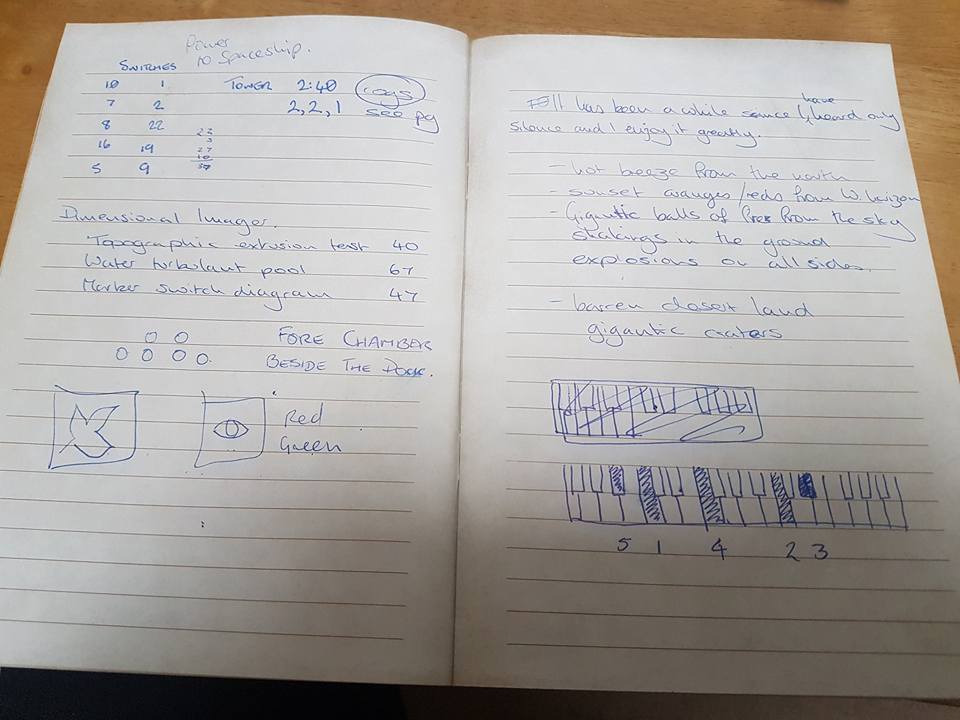 Power
to Spaceship.
SWITCHES
10 1 TOWER 2:40 cogs
7 2 2,2,1 see pg
8 22
16 19
5 9
23
3
27
10
Dimensional Imager.
Topographic extrusion test 40
Water turbulant pool 67
Marker switch diagram 47
FORE CHAMBER
BESIDE THE DOCK.
Red
Green
have
It has been a while sance I heard only
silence and I enjoy it greatly.
- hot breeze from the north
- sunset oranges/reds from W. horizon
- Gigantic balls of fire from the sky
in the ground
explosions on all sides.
- barren desert land
gigantic craters
5 1 4 2 3